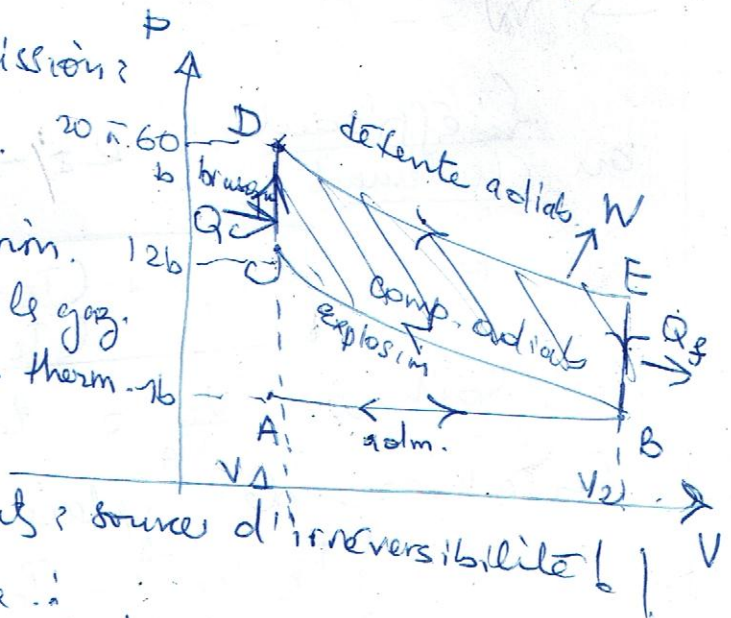 P
ission:
20 à 60
D
détente adiab.
b
W
Qc
E
nion.
12b
C
comp. adiab
le gaz.
explosion
Qf
therm.
1b
A
adm.
B
V1
V2
V
source d'irréversibilité !